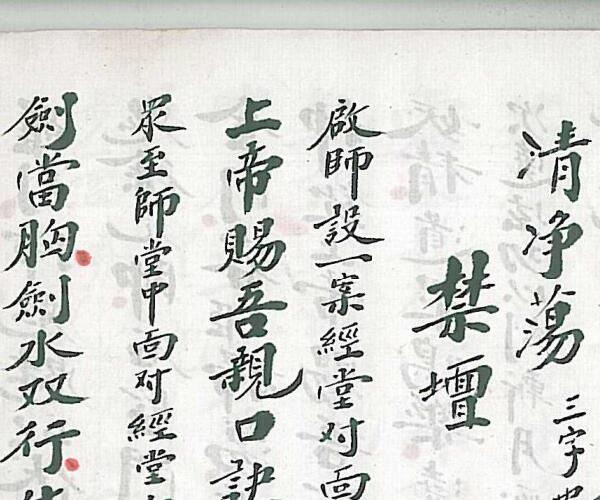 清净荡 三字
禁壇
啟師設一案經堂对面
上帝賜吾親口訣
眾至師堂中面对經堂
劍當胸劍水双行